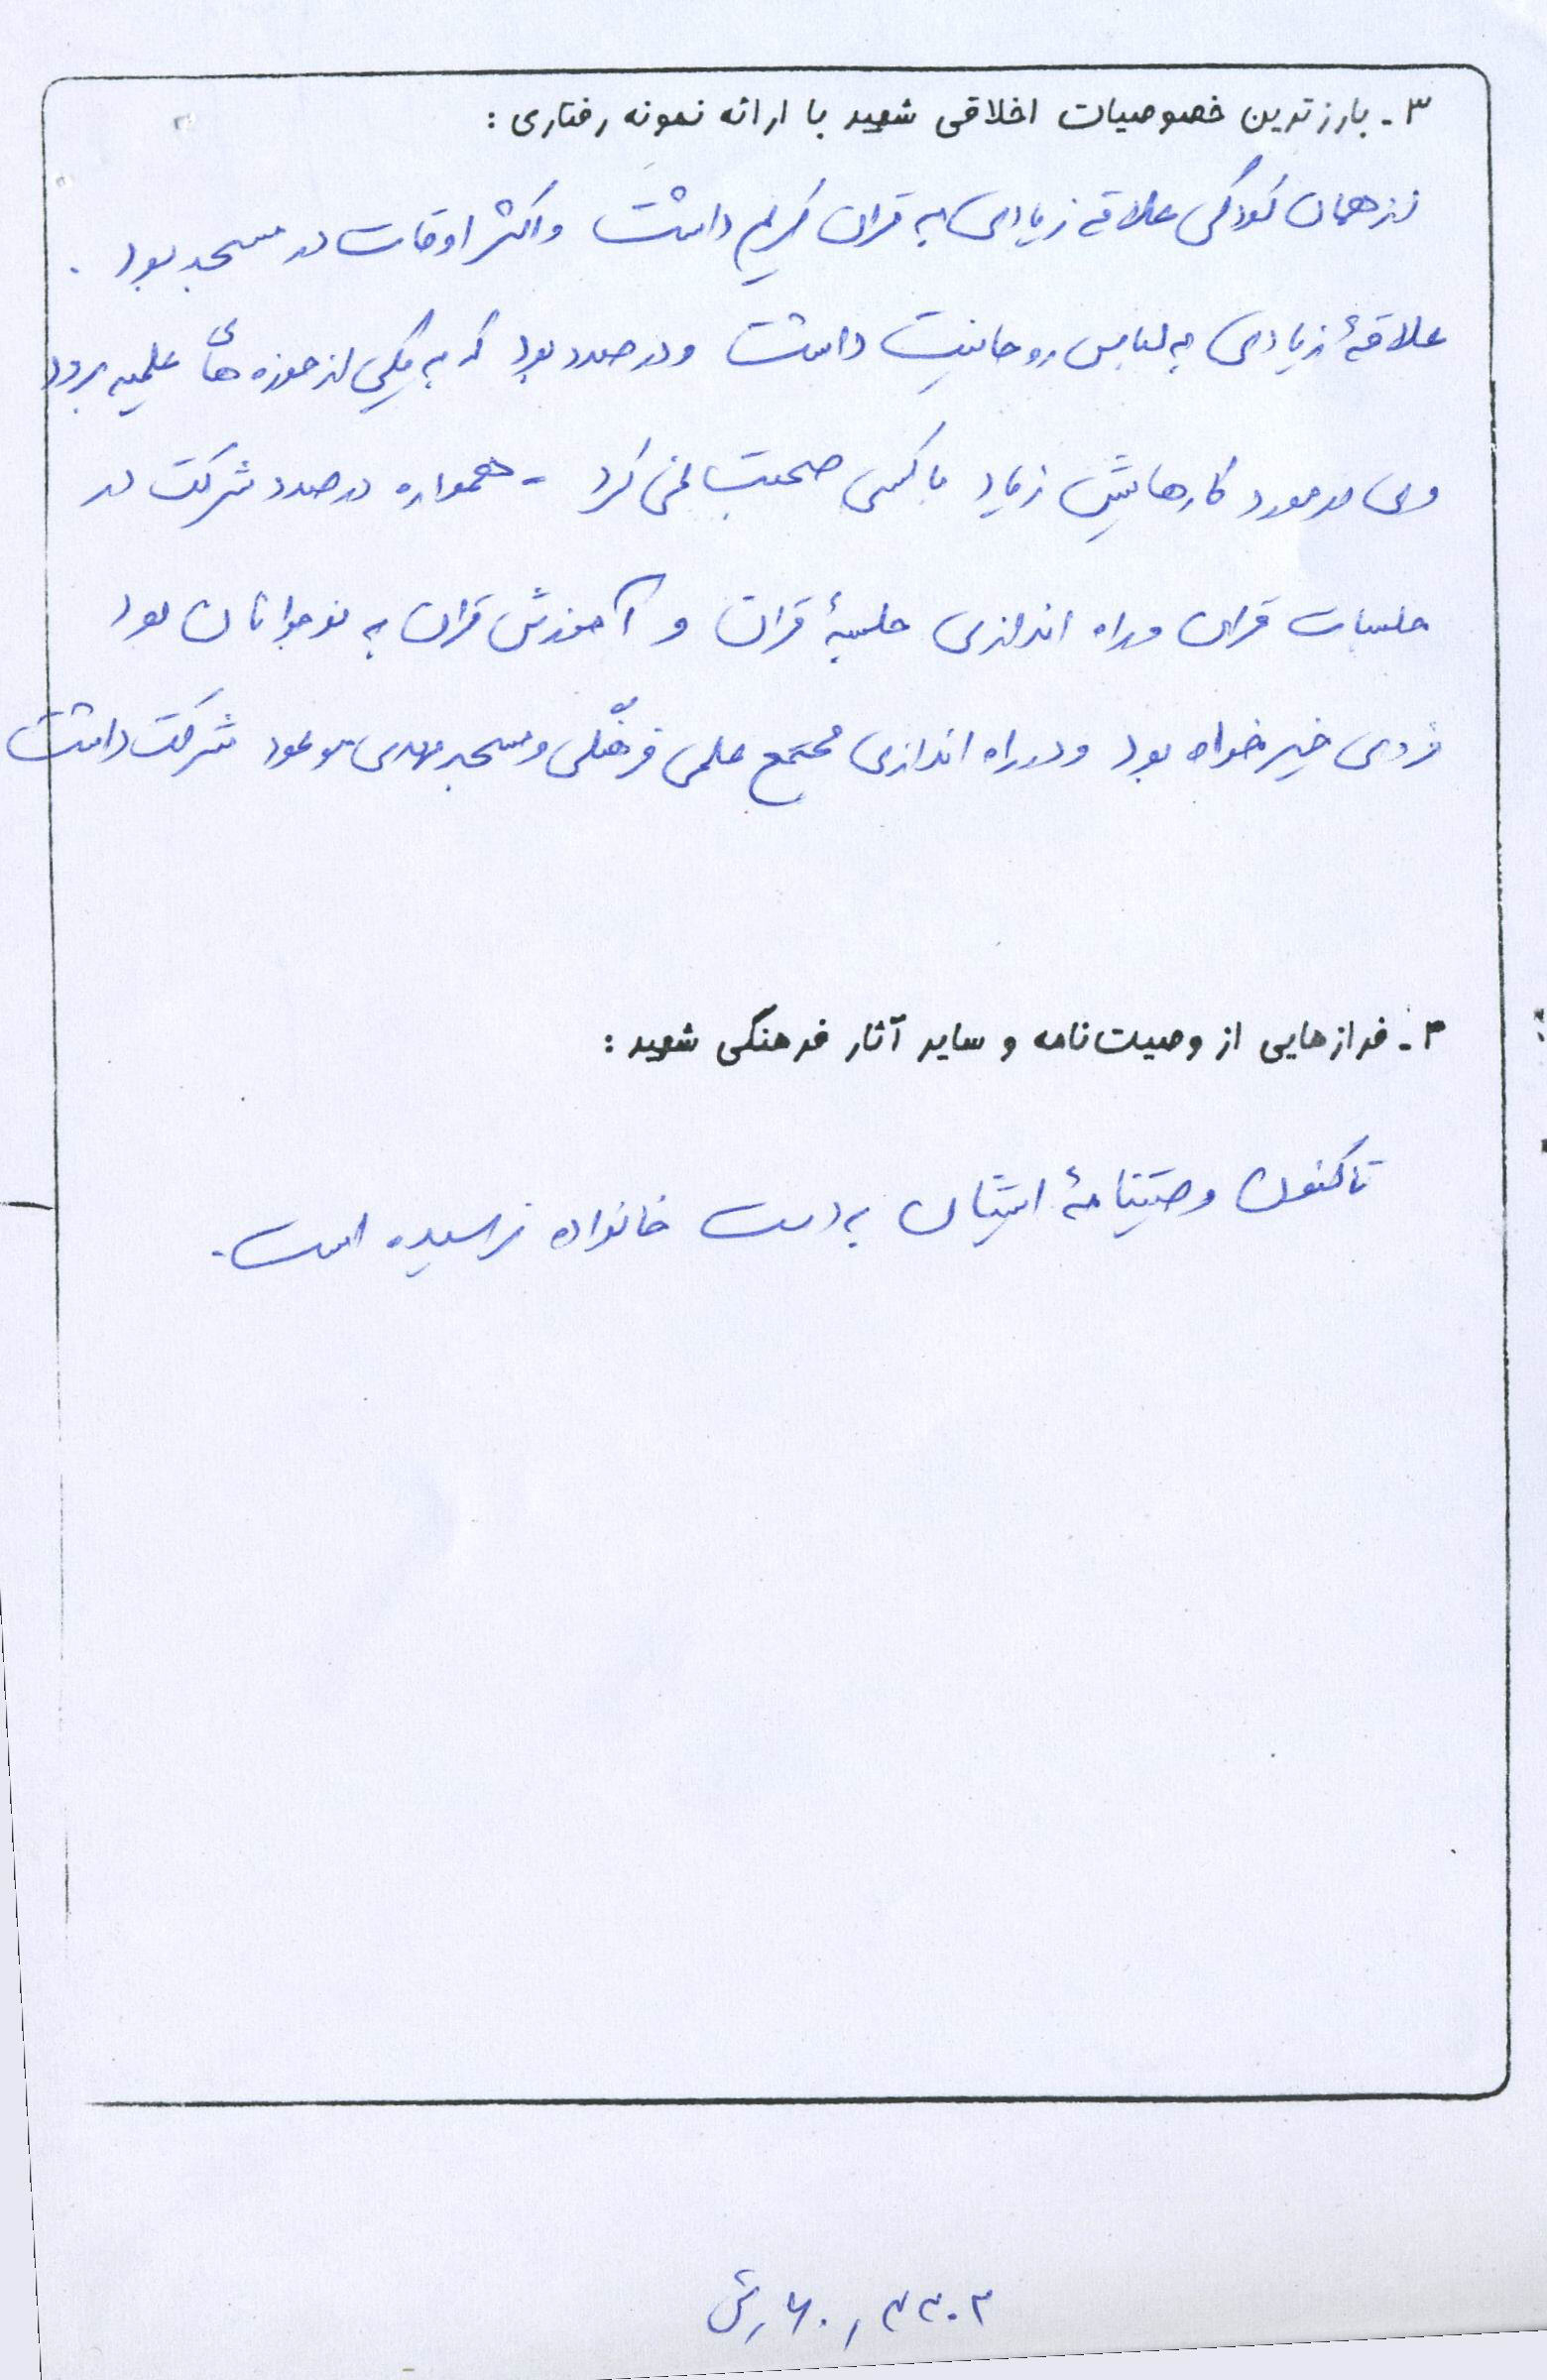 ۳- بارزترین خصوصیات اخلاقی شهید با ارائه نمونه رفتاری:
از همان کودکی علاقه زیادی به قران کریم داشت و اکثر اوقات در مسجد بود.
علاقهٔ زیادی به لباس روحانیت داشت و در صدد بود که به یکی از حوزه های علمیه برود
وی در مورد کارهایش زیاد با کسی صحبت نمی کرد - همواره در صدد شرکت در
جلسات قران و راه اندازی جلسهٔ قران و آموزش قران به نوجوانان بود
فردی خیرخواه بود و در راه اندازی مجتمع علمی فرهنگی و مسجد مهدی موعود شرکت داشت
۴- فرازهایی از وصیت‌نامه و سایر آثار فرهنگی شهید:
تاکنون وصیتنامهٔ ایشان به دست خانواده نرسیده است.